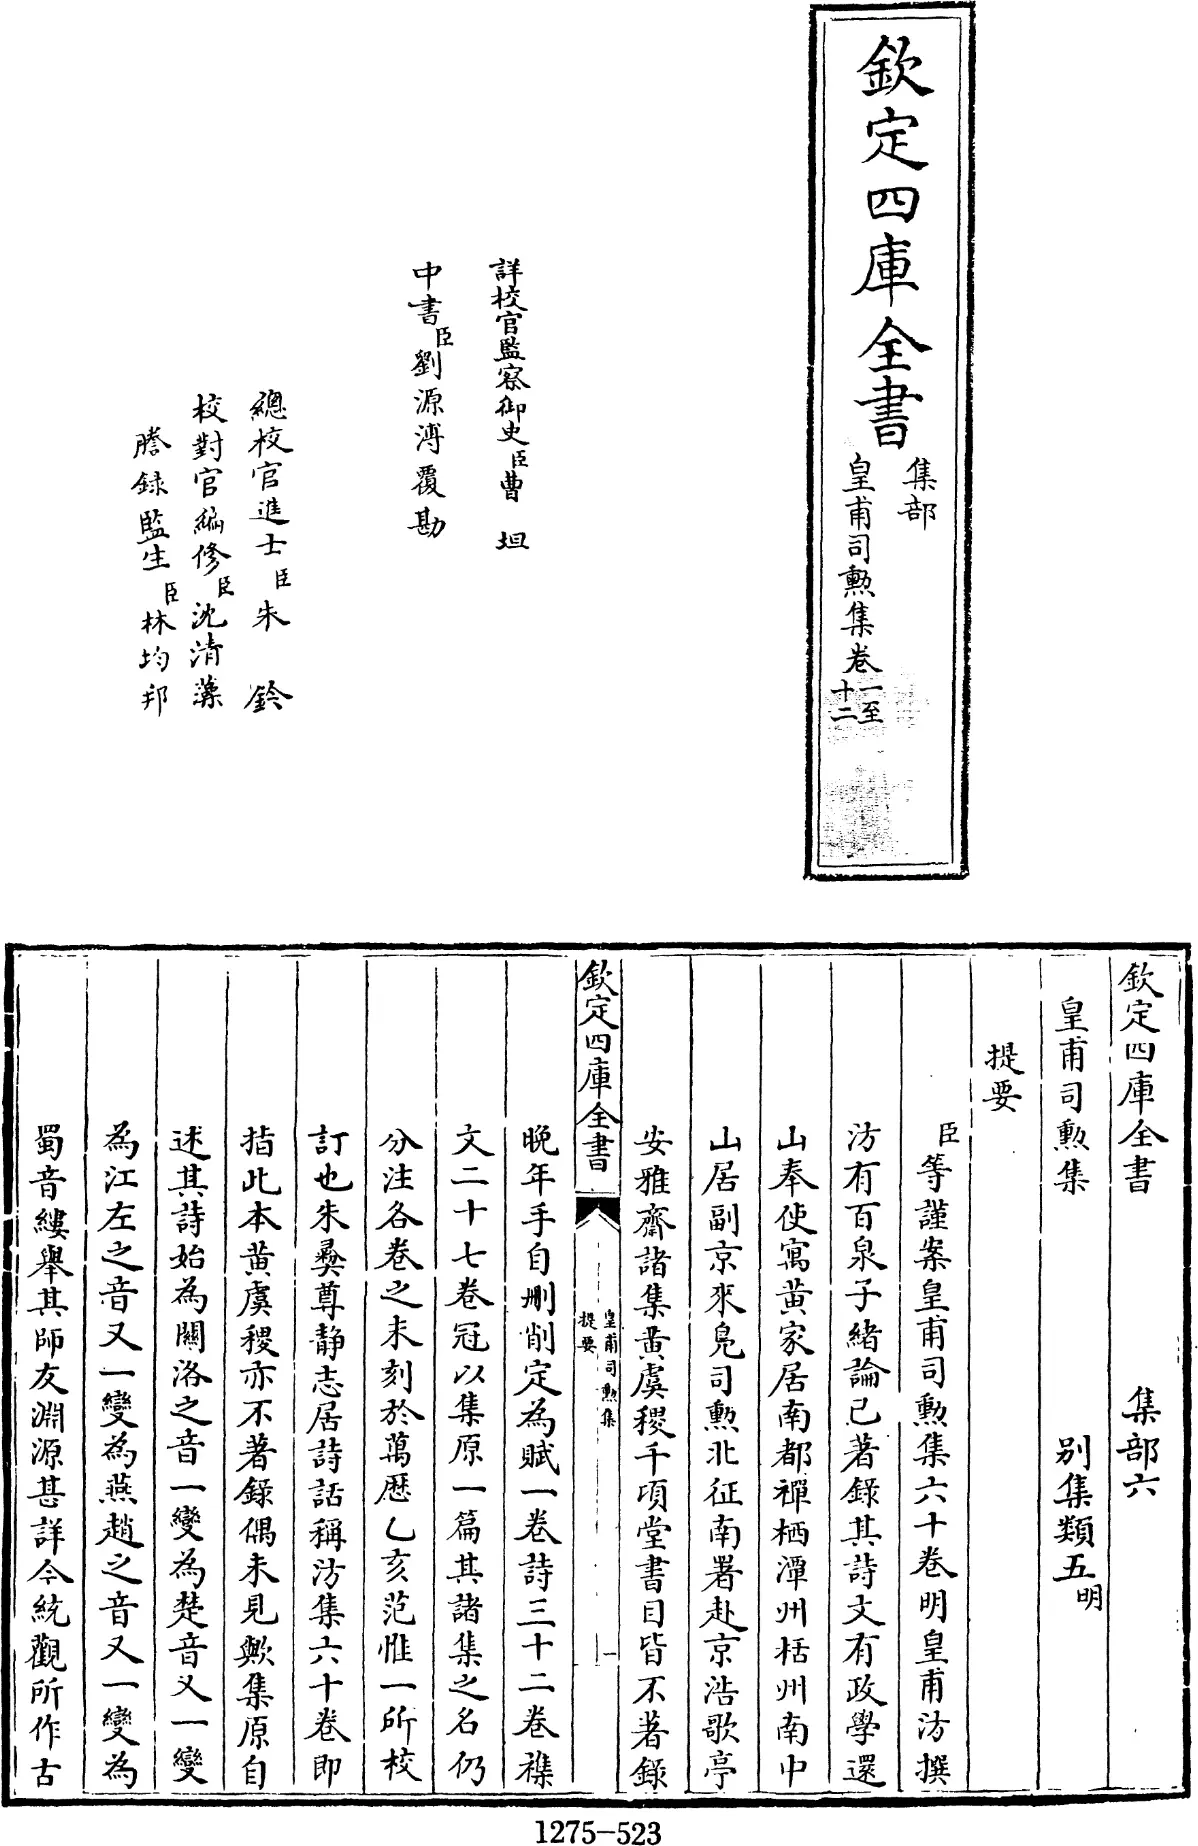 欽定四庫全書
集部
皇甫司勲集卷一至十二
詳校官監察御史臣曹坦
中書臣劉源溥覆勘
總校官進士臣朱鈐
校對官編修臣沈清藻
謄録監生臣林均邦
欽定四庫全書 集部六
皇甫司勲集 别集類五明
提要
臣等謹案皇甫司勲集六十卷明皇甫汸撰
汸有百泉子緒論已著錄其詩文有政學還
山奉使寓黄家居南都禪栖澶州栝州南中
山居副京來鳧司勲北征南署赴京浩歌亭
安雅齋諸集黄虞稷千頃堂書目皆不著錄
欽定四庫全書
皇甫司勲集
提要
一
晚年手自刪削定為賦一卷詩三十二卷襍
文二十七卷冠以集原一篇其諸集之名仍
分注各卷之末刻於萬歴乙亥范惟一所校
訂也朱彞尊静志居詩話稱汸集六十卷即
指此本黄虞稷亦不著錄偶未見歟集原自
述其詩始為關洛之音一變為楚音又一變
為江左之音又一變為燕趙之音又一變為
蜀音縷舉其師友淵源甚詳今統觀所作古
1275-523